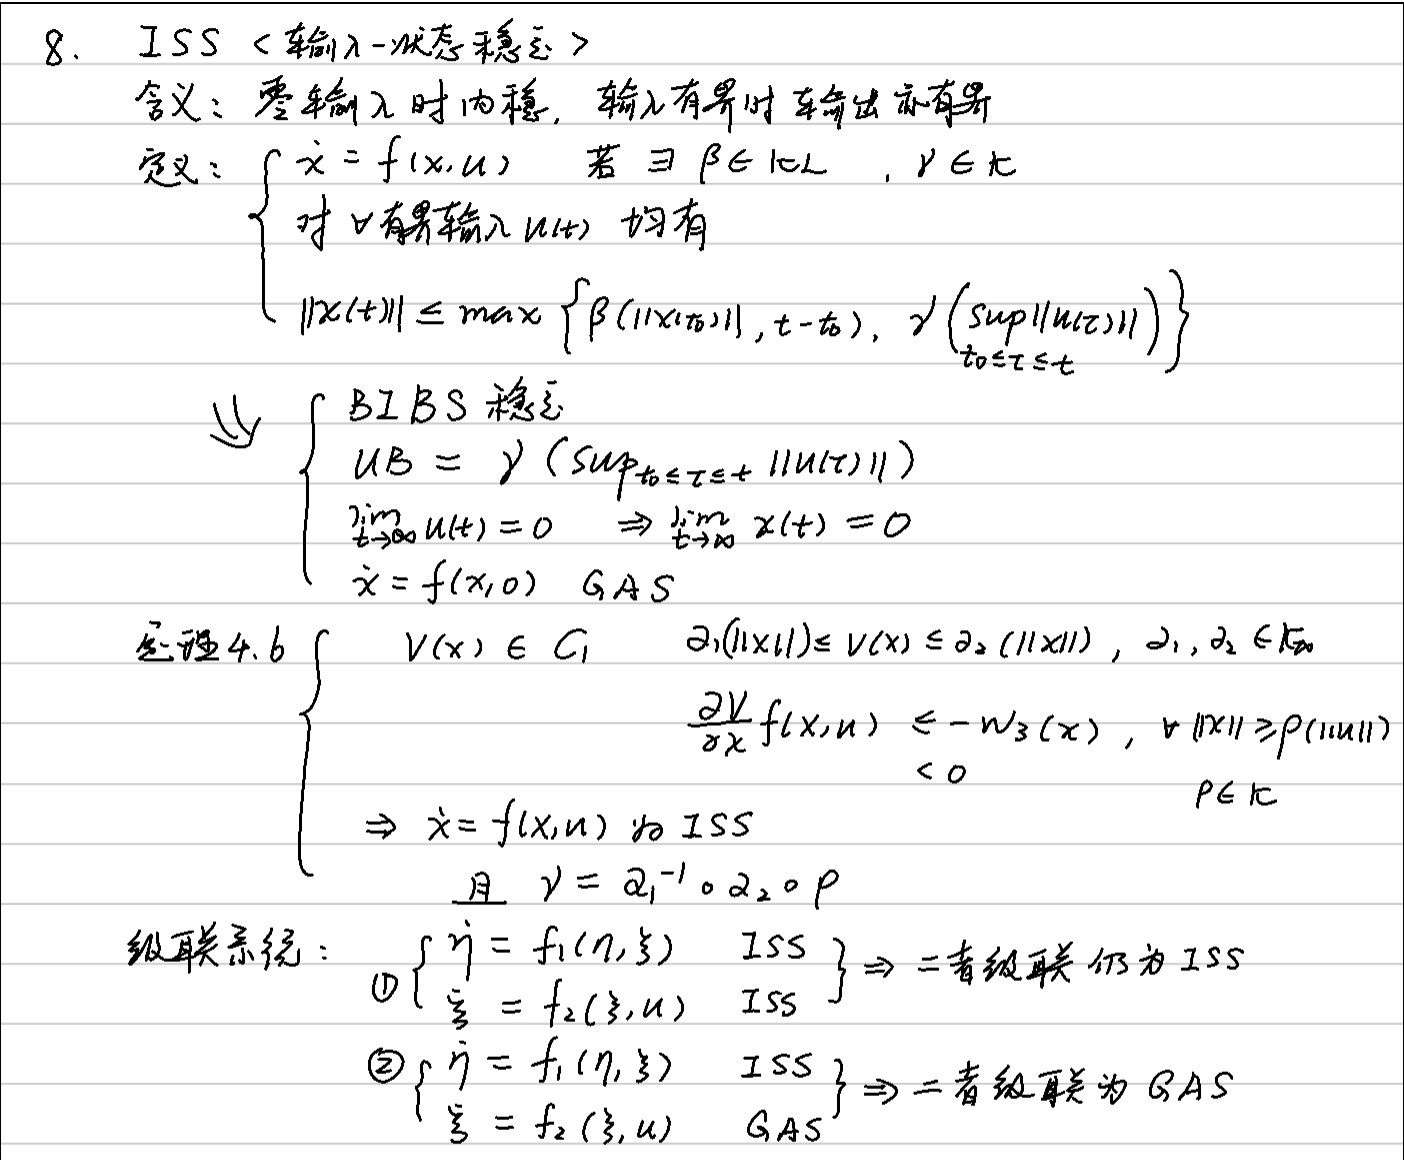 8. ISS <输入-状态稳定>
含义：零输入时内稳，输入有界时输出亦有界
定义：{ ẋ = f(x,u) 若 ∃ β ∈ KL , γ ∈ K
对 ∀ 有界输入 u(t) 均有
||x(t)|| ≤ max { β(||x(t₀)||, t-t₀), γ( sup ||u(τ)|| ) }
t₀≤τ≤t
⇓ { BIBS 稳定
UB = γ (sup_{t₀≤τ≤t} ||u(τ)||)
lim_{t→∞} u(t) = 0 ⇒ lim_{t→∞} x(t) = 0
ẋ = f(x,0) GAS
定理4.6 { V(x) ∈ C₁ α₁(||x||) ≤ V(x) ≤ α₂(||x||), α₁, α₂ ∈ K∞
∂V/∂x f(x,u) ≤ -W₃(x), ∀ ||x|| ≥ ρ(||u||)
< 0 ρ ∈ K
⇒ ẋ = f(x,u) 为 ISS
且 γ = α₁⁻¹ ∘ α₂ ∘ ρ
级联系统： ① { η̇ = f₁(η,ξ) ISS } ⇒ 二者级联仍为 ISS
ξ̇ = f₂(ξ,u) ISS
② { η̇ = f₁(η,ξ) ISS } ⇒ 二者级联为 GAS
ξ̇ = f₂(ξ,u) GAS